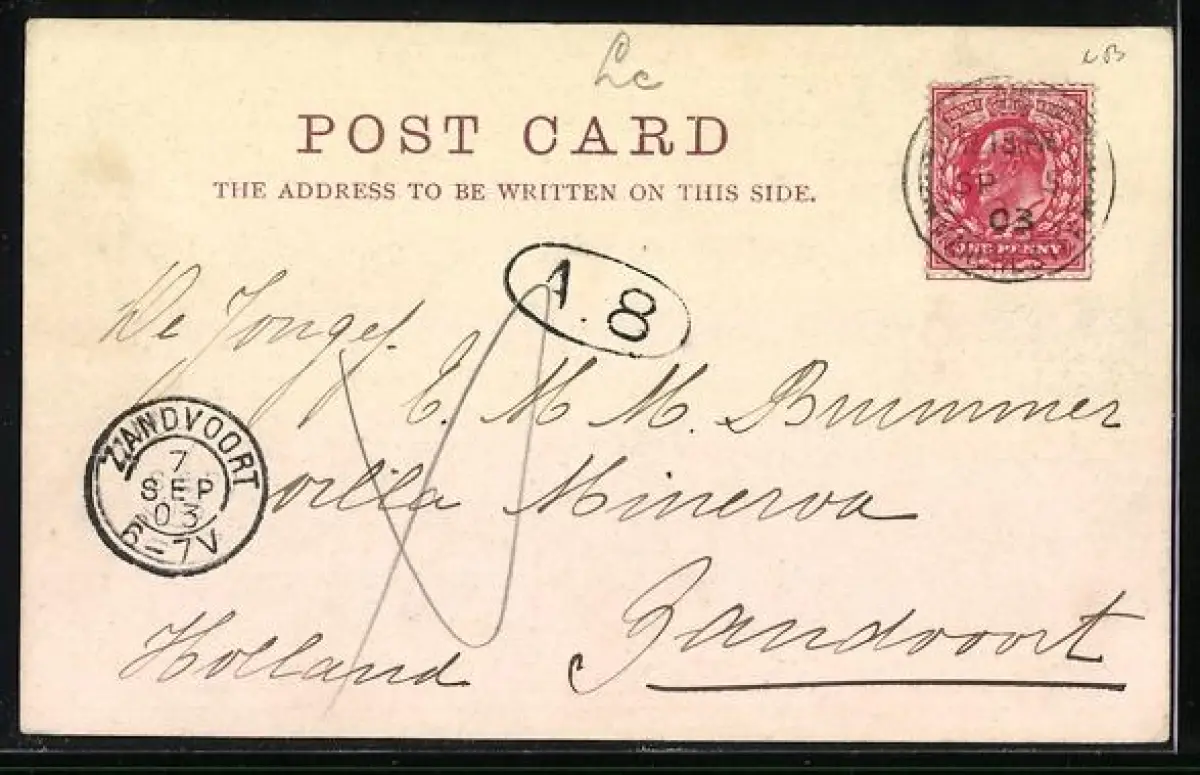 Lc
POST CARD
THE ADDRESS TO BE WRITTEN ON THIS SIDE.
SP 5
03
ONE PENNY
A. 8
De Jongej.
E. M. M. Brummer
Villa Minerva
Zandvoort
Holland
ZANDVOORT
7
SEP
03
6-7V